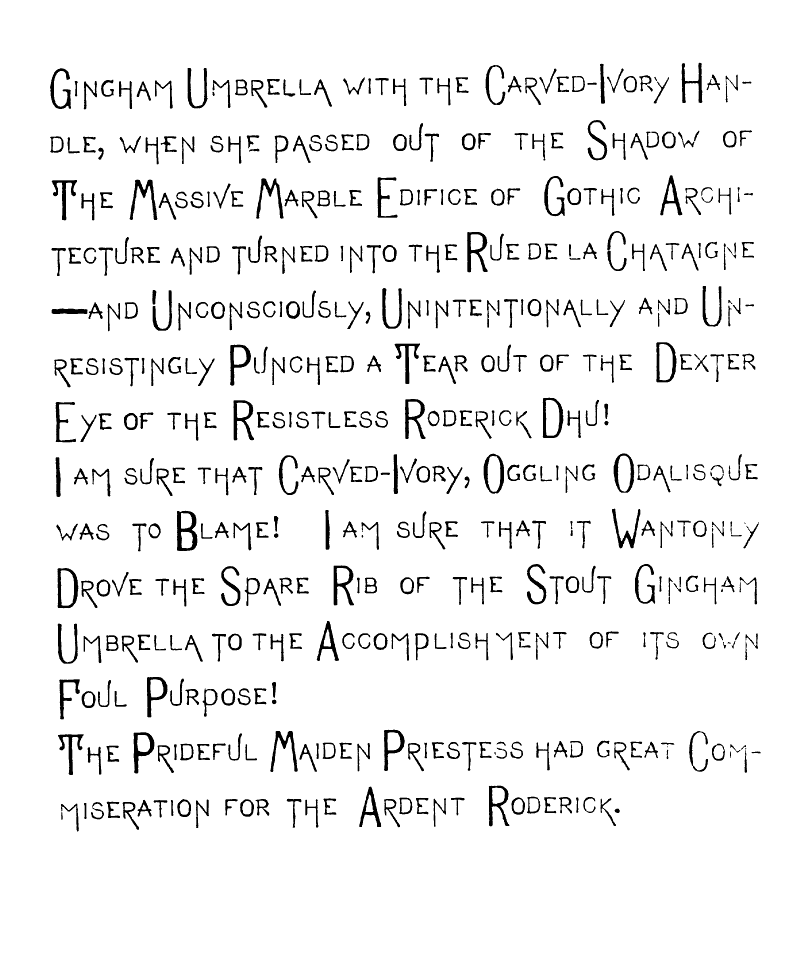 Gingham Umbrella with the Carved-Ivory Han-
dle, when she passed out of the Shadow of
The Massive Marble Edifice of Gothic Archi-
tecture and turned into the Rue de la Chataigne
—and Unconsciously, Unintentionally and Un-
resistingly Punched a Tear out of the Dexter
Eye of the Resistless Roderick Dhu!
I am sure that Carved-Ivory, Oggling Odalisque
was to Blame! I am sure that it Wantonly
Drove the Spare Rib of the Stout Gingham
Umbrella to the Accomplishment of its own
Foul Purpose!
The Prideful Maiden Priestess had great Com-
miseration for the Ardent Roderick.